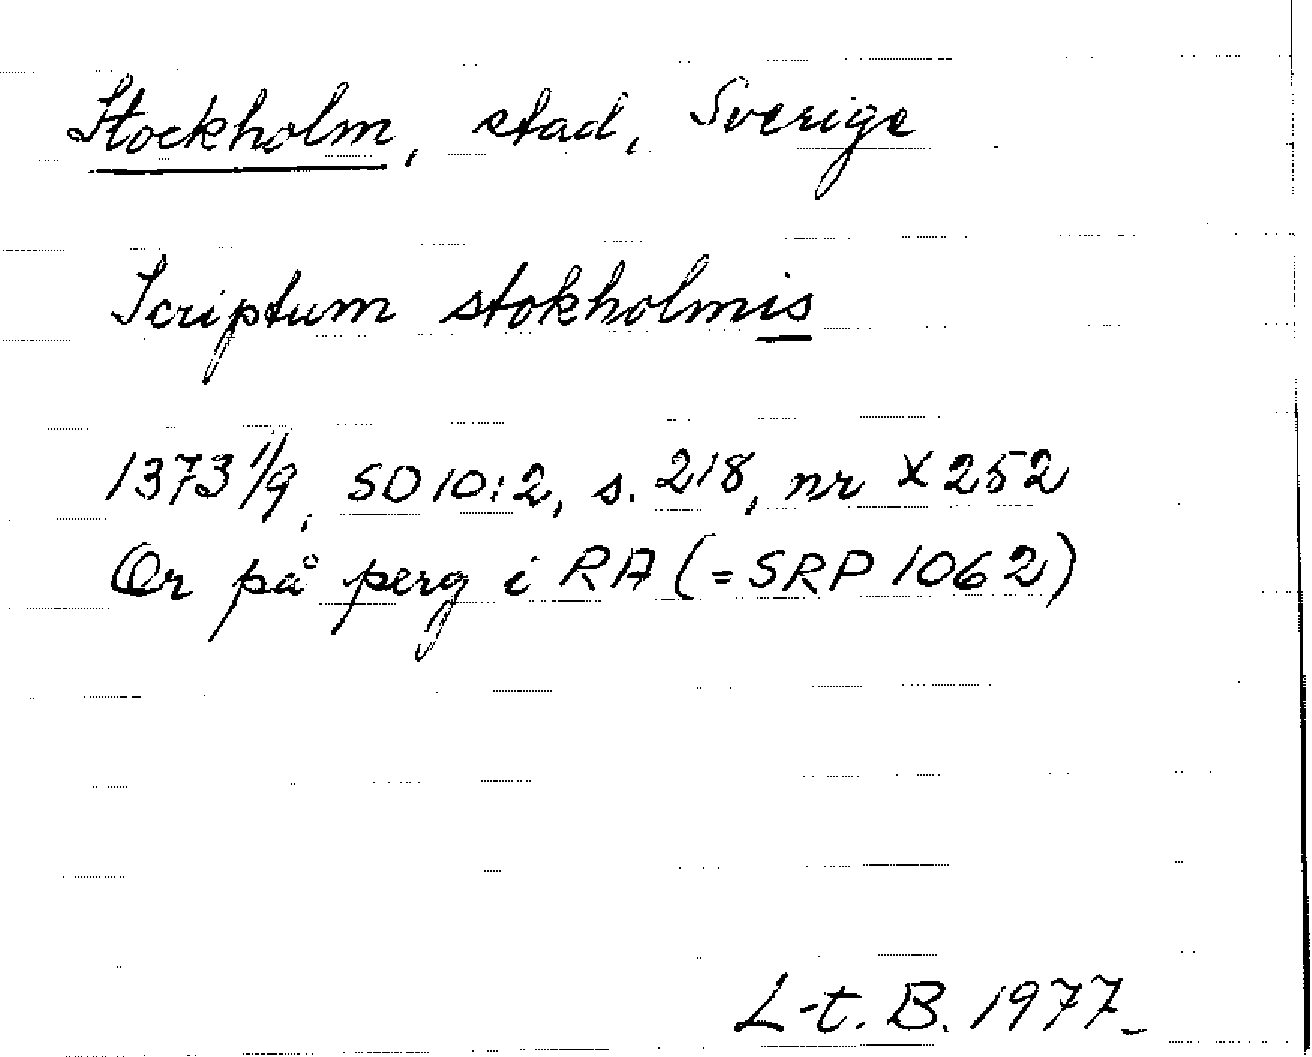 Stockholm, stad, Sverige
Scriptum stokholmis
1373 1/9, SD 10:2, s. 218, nr X252
Or på perg i RA (=SRP 1062)
L-t. B. 1977